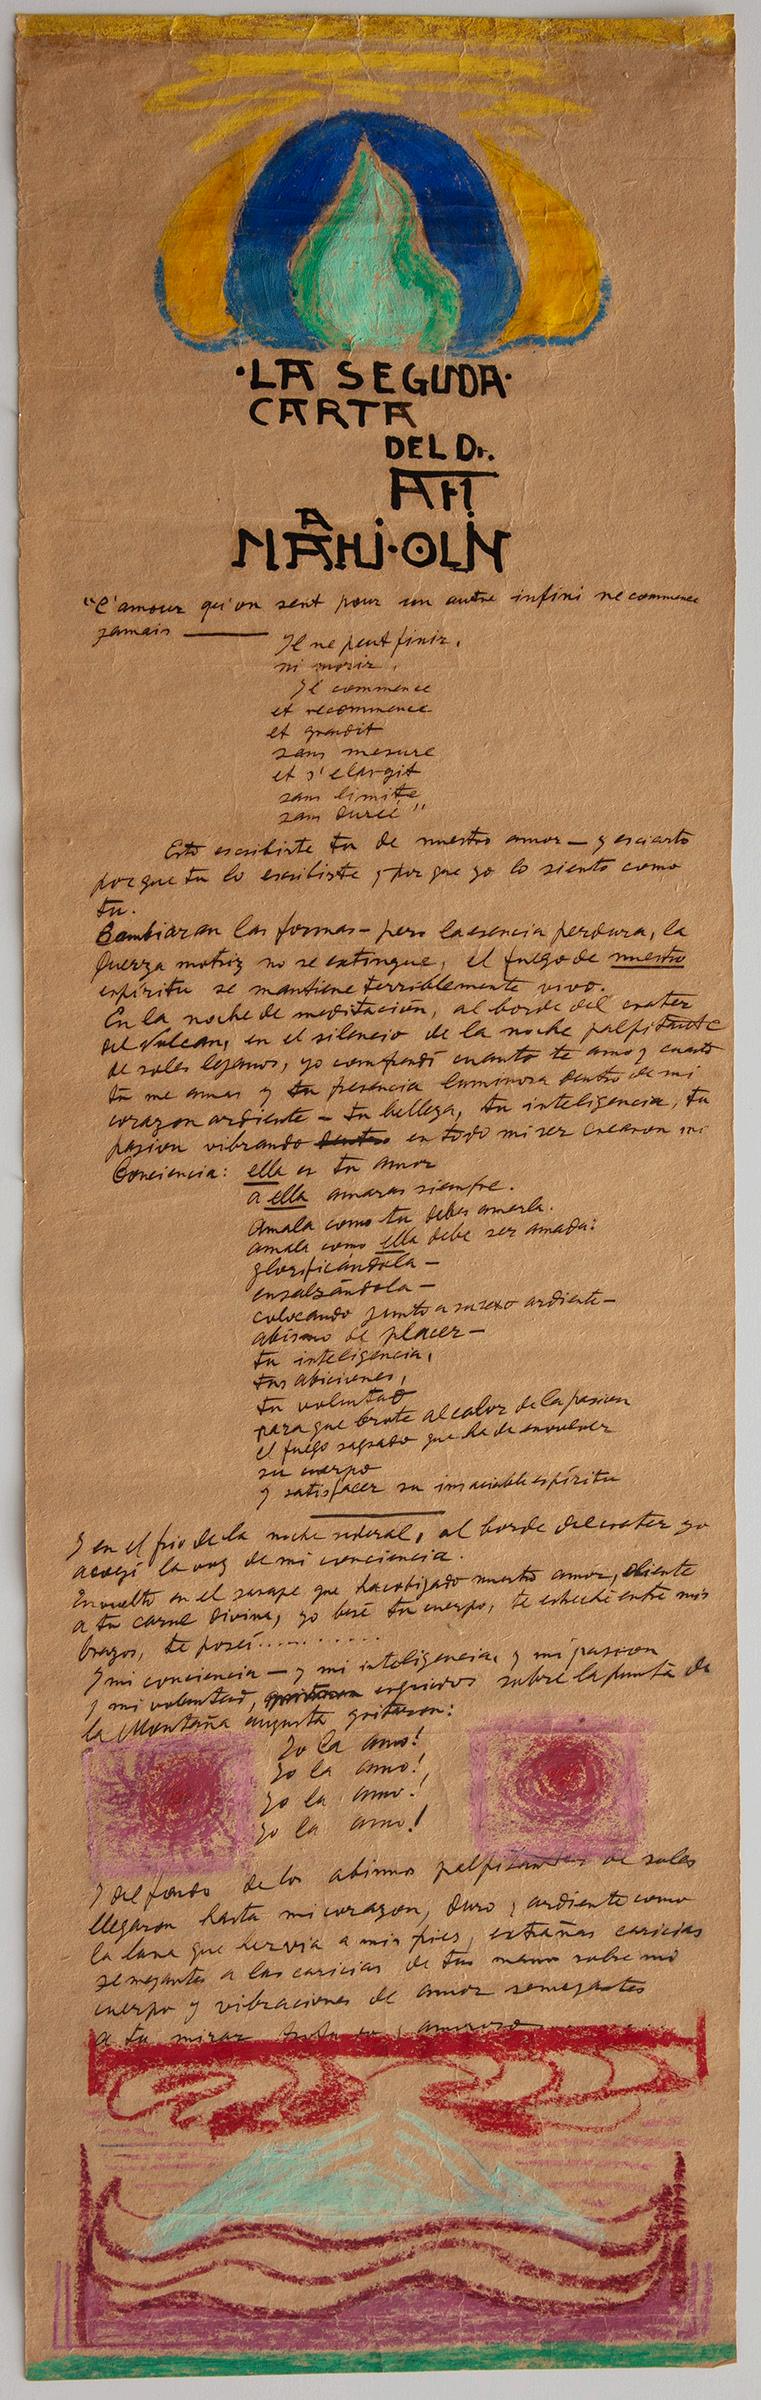 ·LA SEGUDA·
CARTA
DEL Dr.
AH
A
NAHJ·OLJN
"L'amour qu'on sent pour un autre infini ne commence
jamais —— Il ne peut finir,
ni morir.
Il commence
et recommence
et grandit
sans mesure
et s'elargit
sans limite
sans dureé"
Esto escribiste tu de nuestro amor — y es cierto
porque tu lo escribiste y por que yo lo siento como
tu.
Cambiaran las formas — pero la esencia perdura, la
fuerza motriz no se extingue, el fuego de nuestro
espíritu se mantiene terriblemente vivo.
En la noche de meditación, al borde del crater
del Vulcan, en el silencio de la noche palpitante
de soles lejanos, yo comprendí cuanto te amo y cuanto
tu me amas y tu presencia luminosa dentro de mi
corazon ardiente — tu belleza, tu inteligencia, tu
pasion vibrando dentro en todo mi ser crearon mi
Conciencia: ella es tu amor
a ella amaras siempre.
Amala como tu debes amarla.
amala como ella debe ser amada:
glorificándola —
ensalsándola —
colocando junto a su sexo ardiente —
abismo de placer —
tu inteligencia,
tus abiciones,
tu voluntad
para que brote al calor de la pasion
el fuego sagrado que ha de envolver
su cuerpo
y satisfacer su insaciable espíritu
Y en el frio de la noche sideral, al borde del crater yo
acogí la voz de mi conciencia.
Envuelto en el sarape que ha cobijado nuestro amor, oliente
a tu carne divina, yo besé tu cuerpo, te estreché entre mis
brazos, te poseí..........
Y mi conciencia — y mi inteligencia, y mi pasion
y mi voluntad, gritaron erguidos sobre la punta de
la Montaña augusta gritaron:
Yo la amo!
Yo la amo!
Yo la amo!
Yo la amo!
Y del fondo de los abismos palpitantes de soles
llegaron hasta mi corazon, duro y ardiente como
la lava que hervia a mis pies, extrañas caricias
semejantes a las caricias de tus manos sobre mi
cuerpo y vibraciones de amor semejantes
a tu mirar amoroso